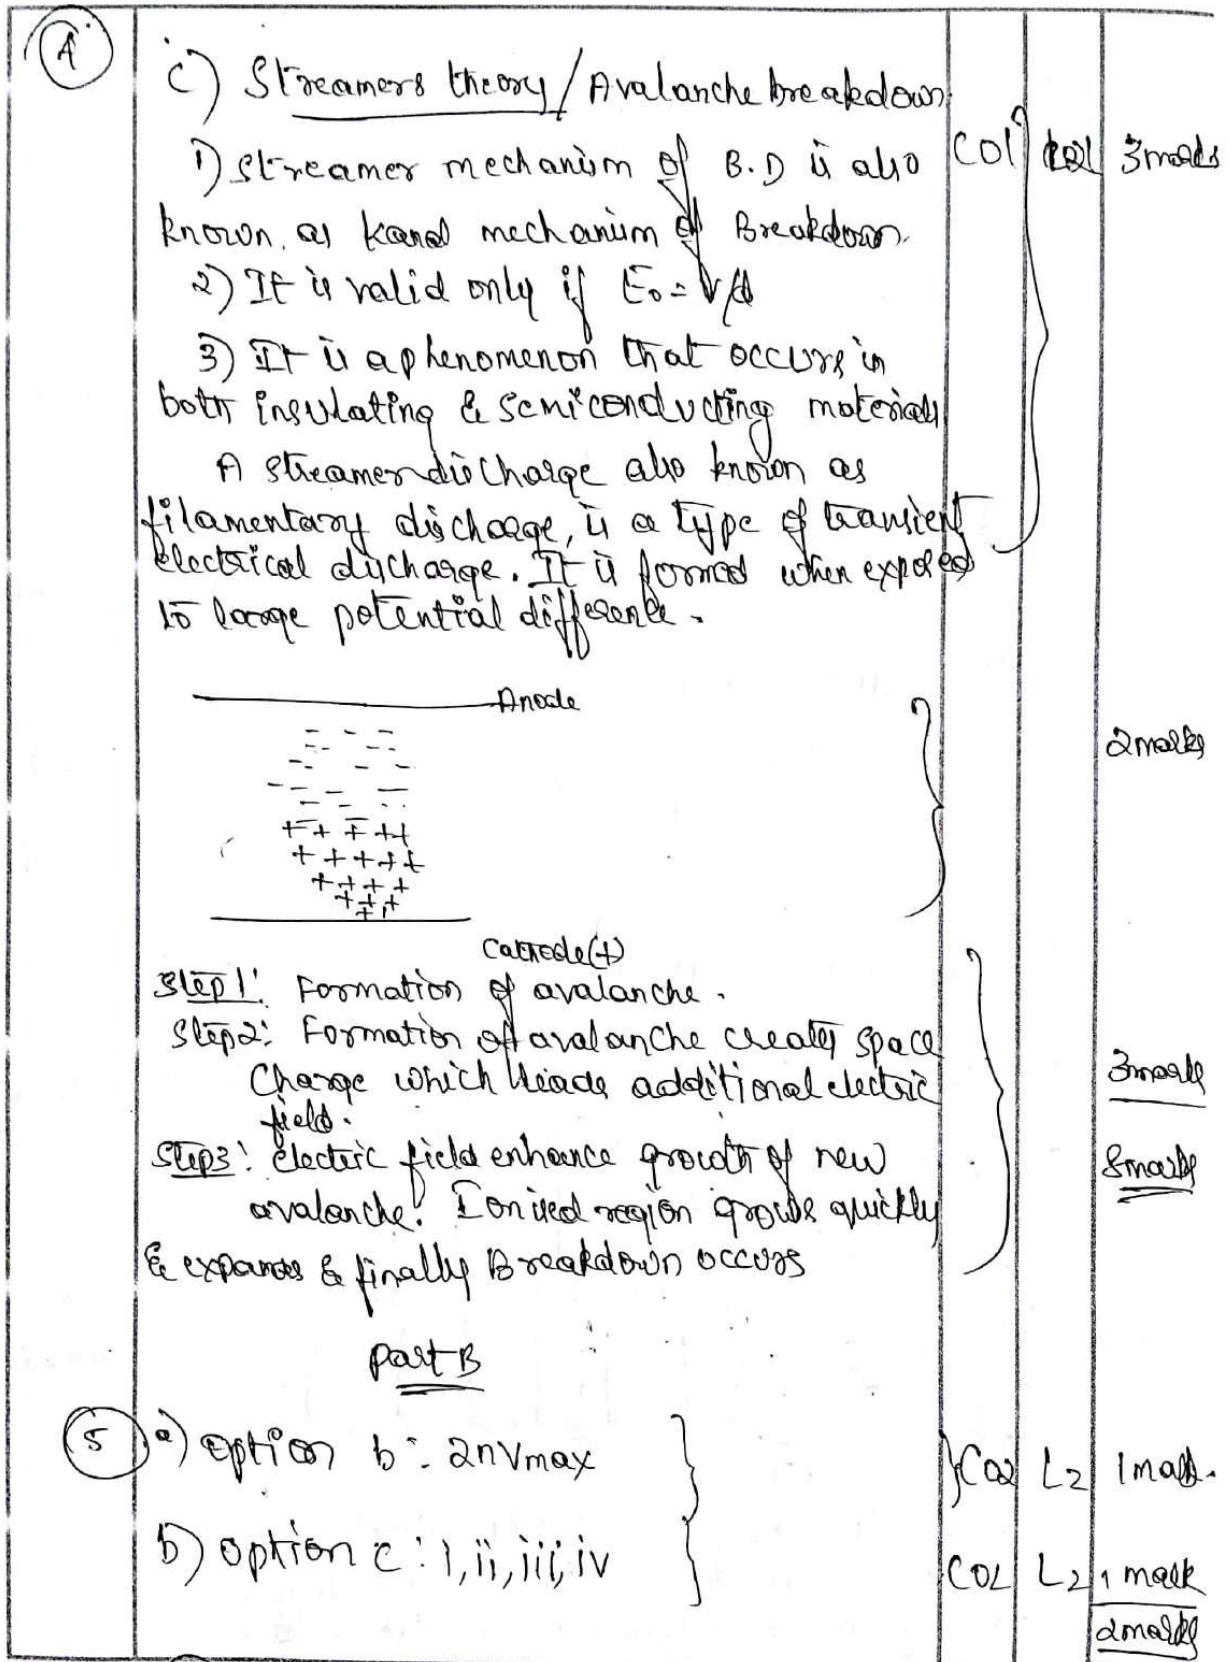 4
c) Streamers theory / Avalanche breakdown
1) Streamer mechanism of B.D is also CO1 3marks
known as Kanal mechanism of Breakdown.
2) It is valid only if E₀ = V/d
3) It is a phenomenon that occurs in
both insulating & semiconducting materials
A streamer discharge also known as
filamentary discharge, is a type of transient
electrical discharge. It is formed when exposed
to large potential difference.
Anode
2marks
Cathode(+)
Step1: Formation of avalanche.
Step2: Formation of avalanche creates space
Charge which leads additional electric 3marks
field.
Step3: electric field enhance growth of new 8marks
avalanche. Ionised region grows quickly
& expands & finally Breakdown occurs
Part B
5 a) option b : 2nVmax CO2 L2 1mark.
b) option c : i, ii, iii, iv CO2 L2 1 mark
2marks